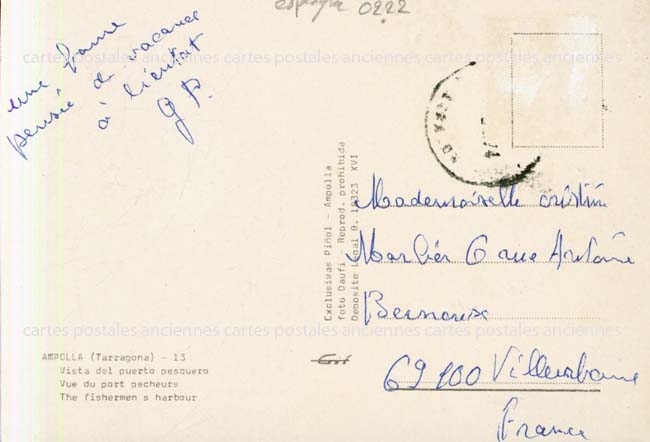 espagne 0222
une bonne
pensée de vacances
à bientôt
GP.
cartes postales anciennes cartes postales anciennes cartes postales anciennes
AMPOLLA (Tarragona) - 13
Vista del puerto pesquero
Vue du port pecheurs
The fishermen s harbour
Exclusivas Piñol - Ampolla
foto Daufi - Reprod. prohibida
Deposito Legal B. 18323 XVI
Mademoiselle
Marbier 6 rue Antoine
69100 Villeurbanne
France
cartes postales anciennes cartes postales anciennes cartes postales anciennes
cartes postales anciennes cartes postales anciennes cartes postales anciennes